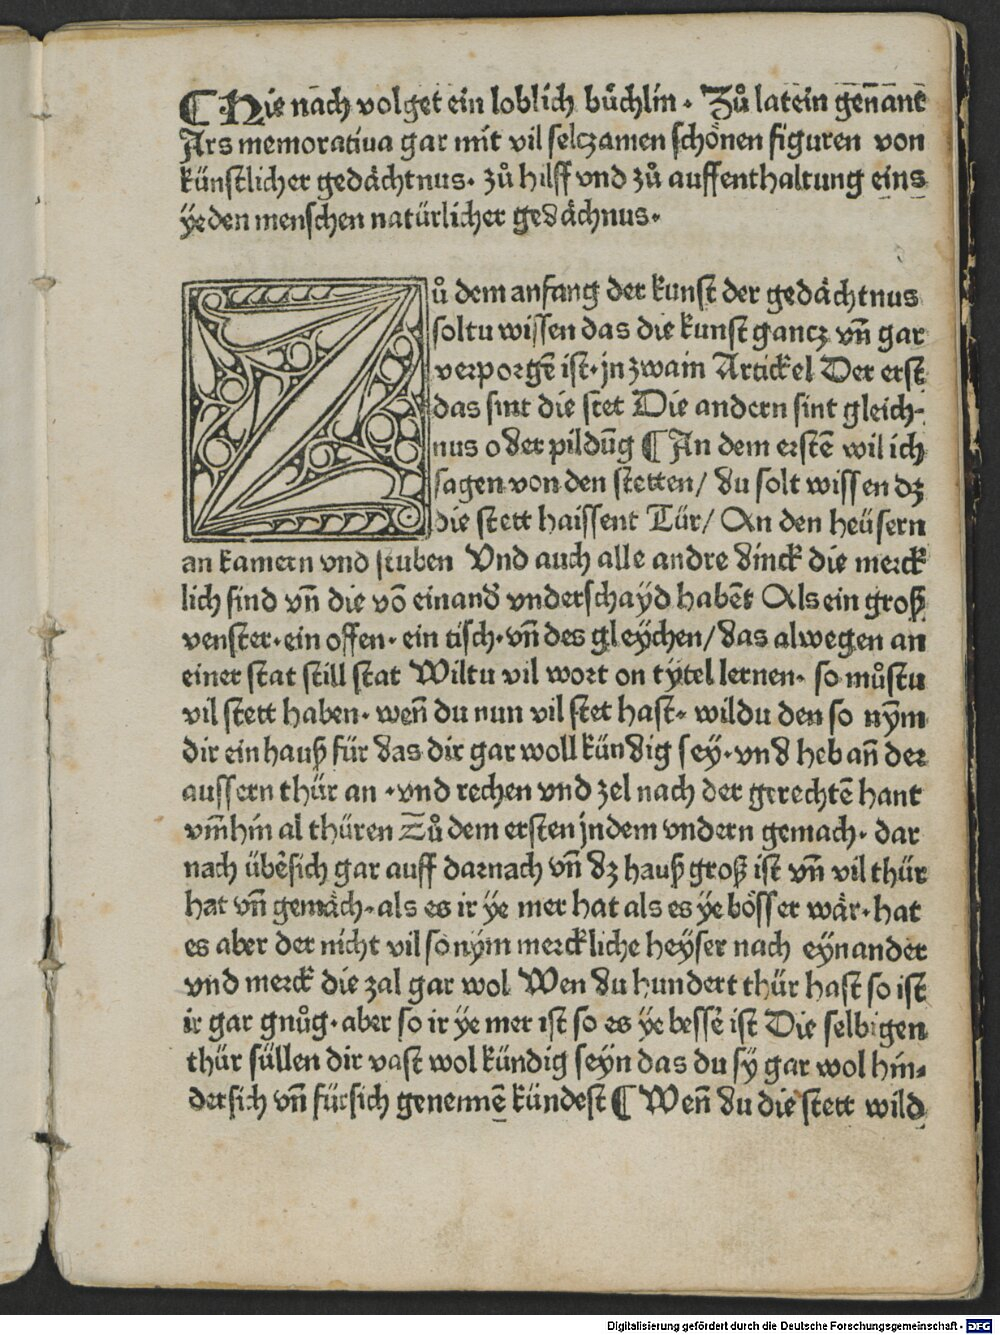 ¶ Hie nach volget ein loblich bůchlin · Zů latein genᷠant
Ars memoratiua gar mit vil selczamen schönen figuren von
künstlicher gedächtnus · zů hilff vnd zů auffenthaltung eins
ÿeden menschen natürlicher gedächnus ·
Zů dem anfang der kunst der gedächtnus
soltu wissen das die kunst gancz vn̄ gar
verporgē ist · jn zwain Artickel Der erst
das sint die stet Die andern sint gleich-
nus oder pildūg ¶ In dem erstē wil ich
sagen von den stetten / du solt wissen dz
die stett haissent Tür / An den heüsern
an kamern vnd stuben Vnd auch alle andre dinck die merck
lich sind vn̄ die vō einand vnderschayd habēt Als ein groß
venster · ein offen · ein tisch · vn̄ des gleÿchen / das alwegen an
einer stat still stat Wiltu vil wort on tÿtel lernen · so můstu
vil stett haben · wen̄ du nun vil stet hast · wildu den so nÿm
dir ein hauß für das dir gar woll kündig seÿ · vnd heb an̄ der
aussern thür an · vnd rechen vnd zel nach der gerechtē hant
vm̄hin al thüren Zů dem ersten jndem vndern gemach · dar
nach übēsich gar auff darnach vn̄ dz hauß groß ist vn̄ vil thür
hat vn̄ gemäch · als es ir ÿe mer hat als es ÿe bösser wär · hat
es aber der nicht vil so nÿm merckliche heÿser nach eÿnander
vnd merck die zal gar wol Wen du hundert thür hast so ist
ir gar gnůg · aber so ir ÿe mer ist so es ÿe bessē ist Die selbigen
thür süllen dir vast wol kündig seÿn das du sÿ gar wol hin-
dersich vn̄ fürsich genennē kündest ¶ Wen̄ du die stett wild
Digitalisierung gefördert durch die Deutsche Forschungsgemeinschaft - DFG